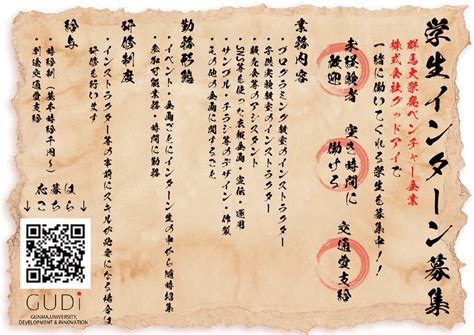 学生インターン募集
群馬大学発ベンチャー企業
株式会社グッドアイで
一緒に働いてくれる学生を募集中!!
未経験者歓迎
空き時間に働ける
交通費支給
業務内容
・プログラミング教室のインストラクター
・子供実験教室のインストラクター
・販売会等のアシスタント
・SNS等を使った企画・宣伝・運用
・サンプル・チラシ等のデザイン・作製
・その他の企画に関すること。
勤務形態
・イベント・企画ごとにインターン生の中から随時招集
・参加可能業務・時間に勤務
研修制度
・インストラクター等の事前にスキルが必要になる場合は
研修を行います
給与
・時給制(基本時給千円~)
・別途交通費支給
応募は
こちら
GUDi
GUNMA,UNIVERSITY,
DEVELOPMENT & INNOVATION